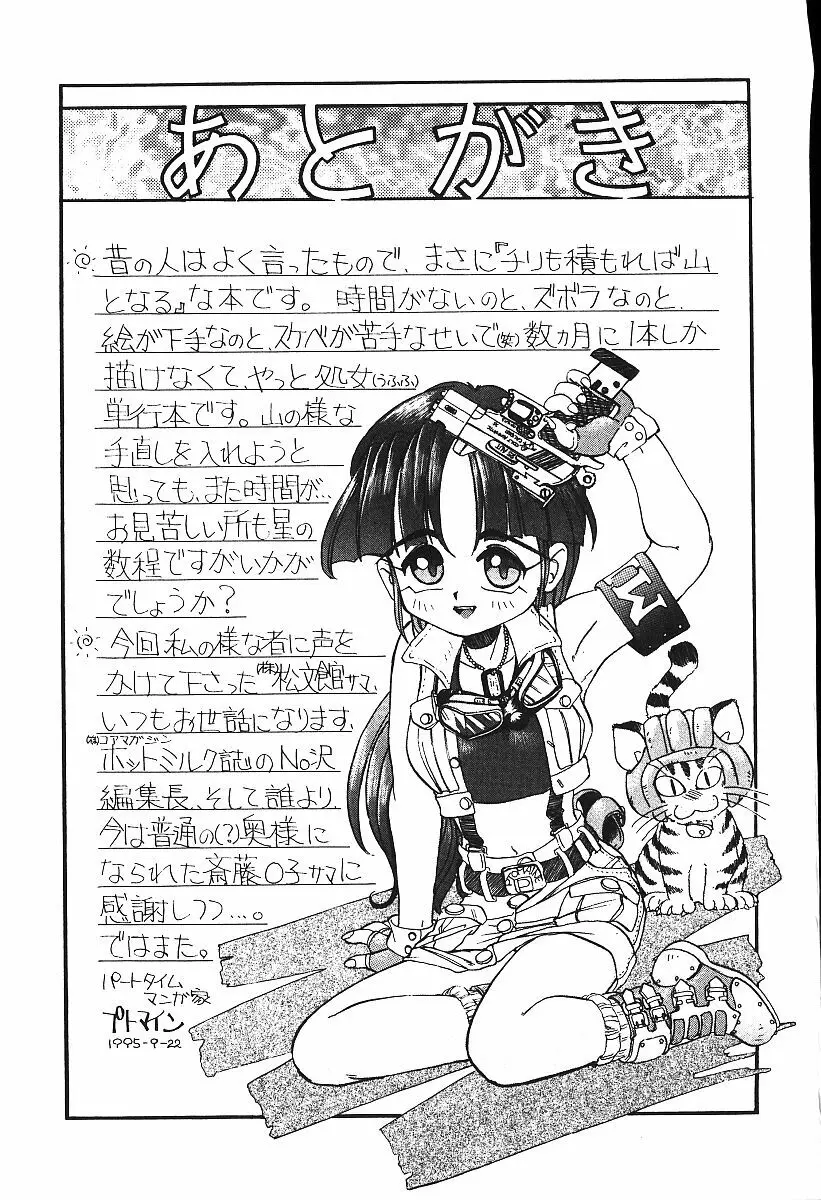 あとがき
昔の人はよく言ったもので、まさに『チリも積もれば山
となる』な本です。時間がないのと、ズボラなのと、
絵が下手なのと、スケベが苦手なせいで(笑)数ヵ月に1本しか
描けなくて、やっと処女(うふふ)
単行本です。山の様な
手直しを入れようと
思っても、また時間が…
お見苦しい所も星の
数程ですがいかが
でしょうか?
今回私の様な者に声を
かけて下さった(株)松文館サマ、
いつもお世話になります、
(株)コアマガジン
ホットミルク誌のNo沢
編集長、そして誰より
今は普通の(?)奥様に
なられた斎藤○子サマに
感謝しつつ…。
ではまた。
パートタイム
マンガ家
プトマイン
1995-9-22